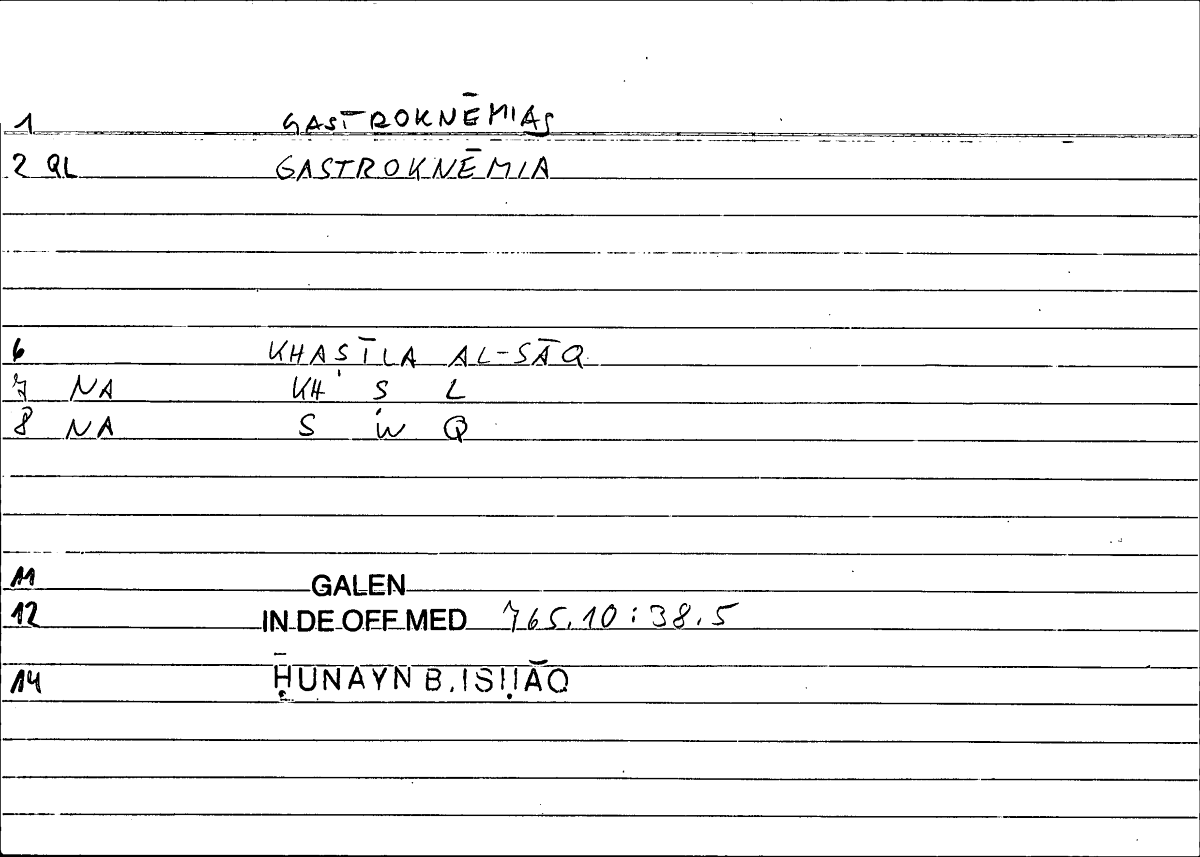 1 GASTROKNĒMIAS
2 QL GASTROKNĒMIA
6 KHAṢĪLA AL-SĀQ
7 NA KH Ṣ L
8 NA S W Q
11 GALEN
12 IN DE OFF MED 765.10 : 38.5
14 ḤUNAYN B. ISḤĀQ